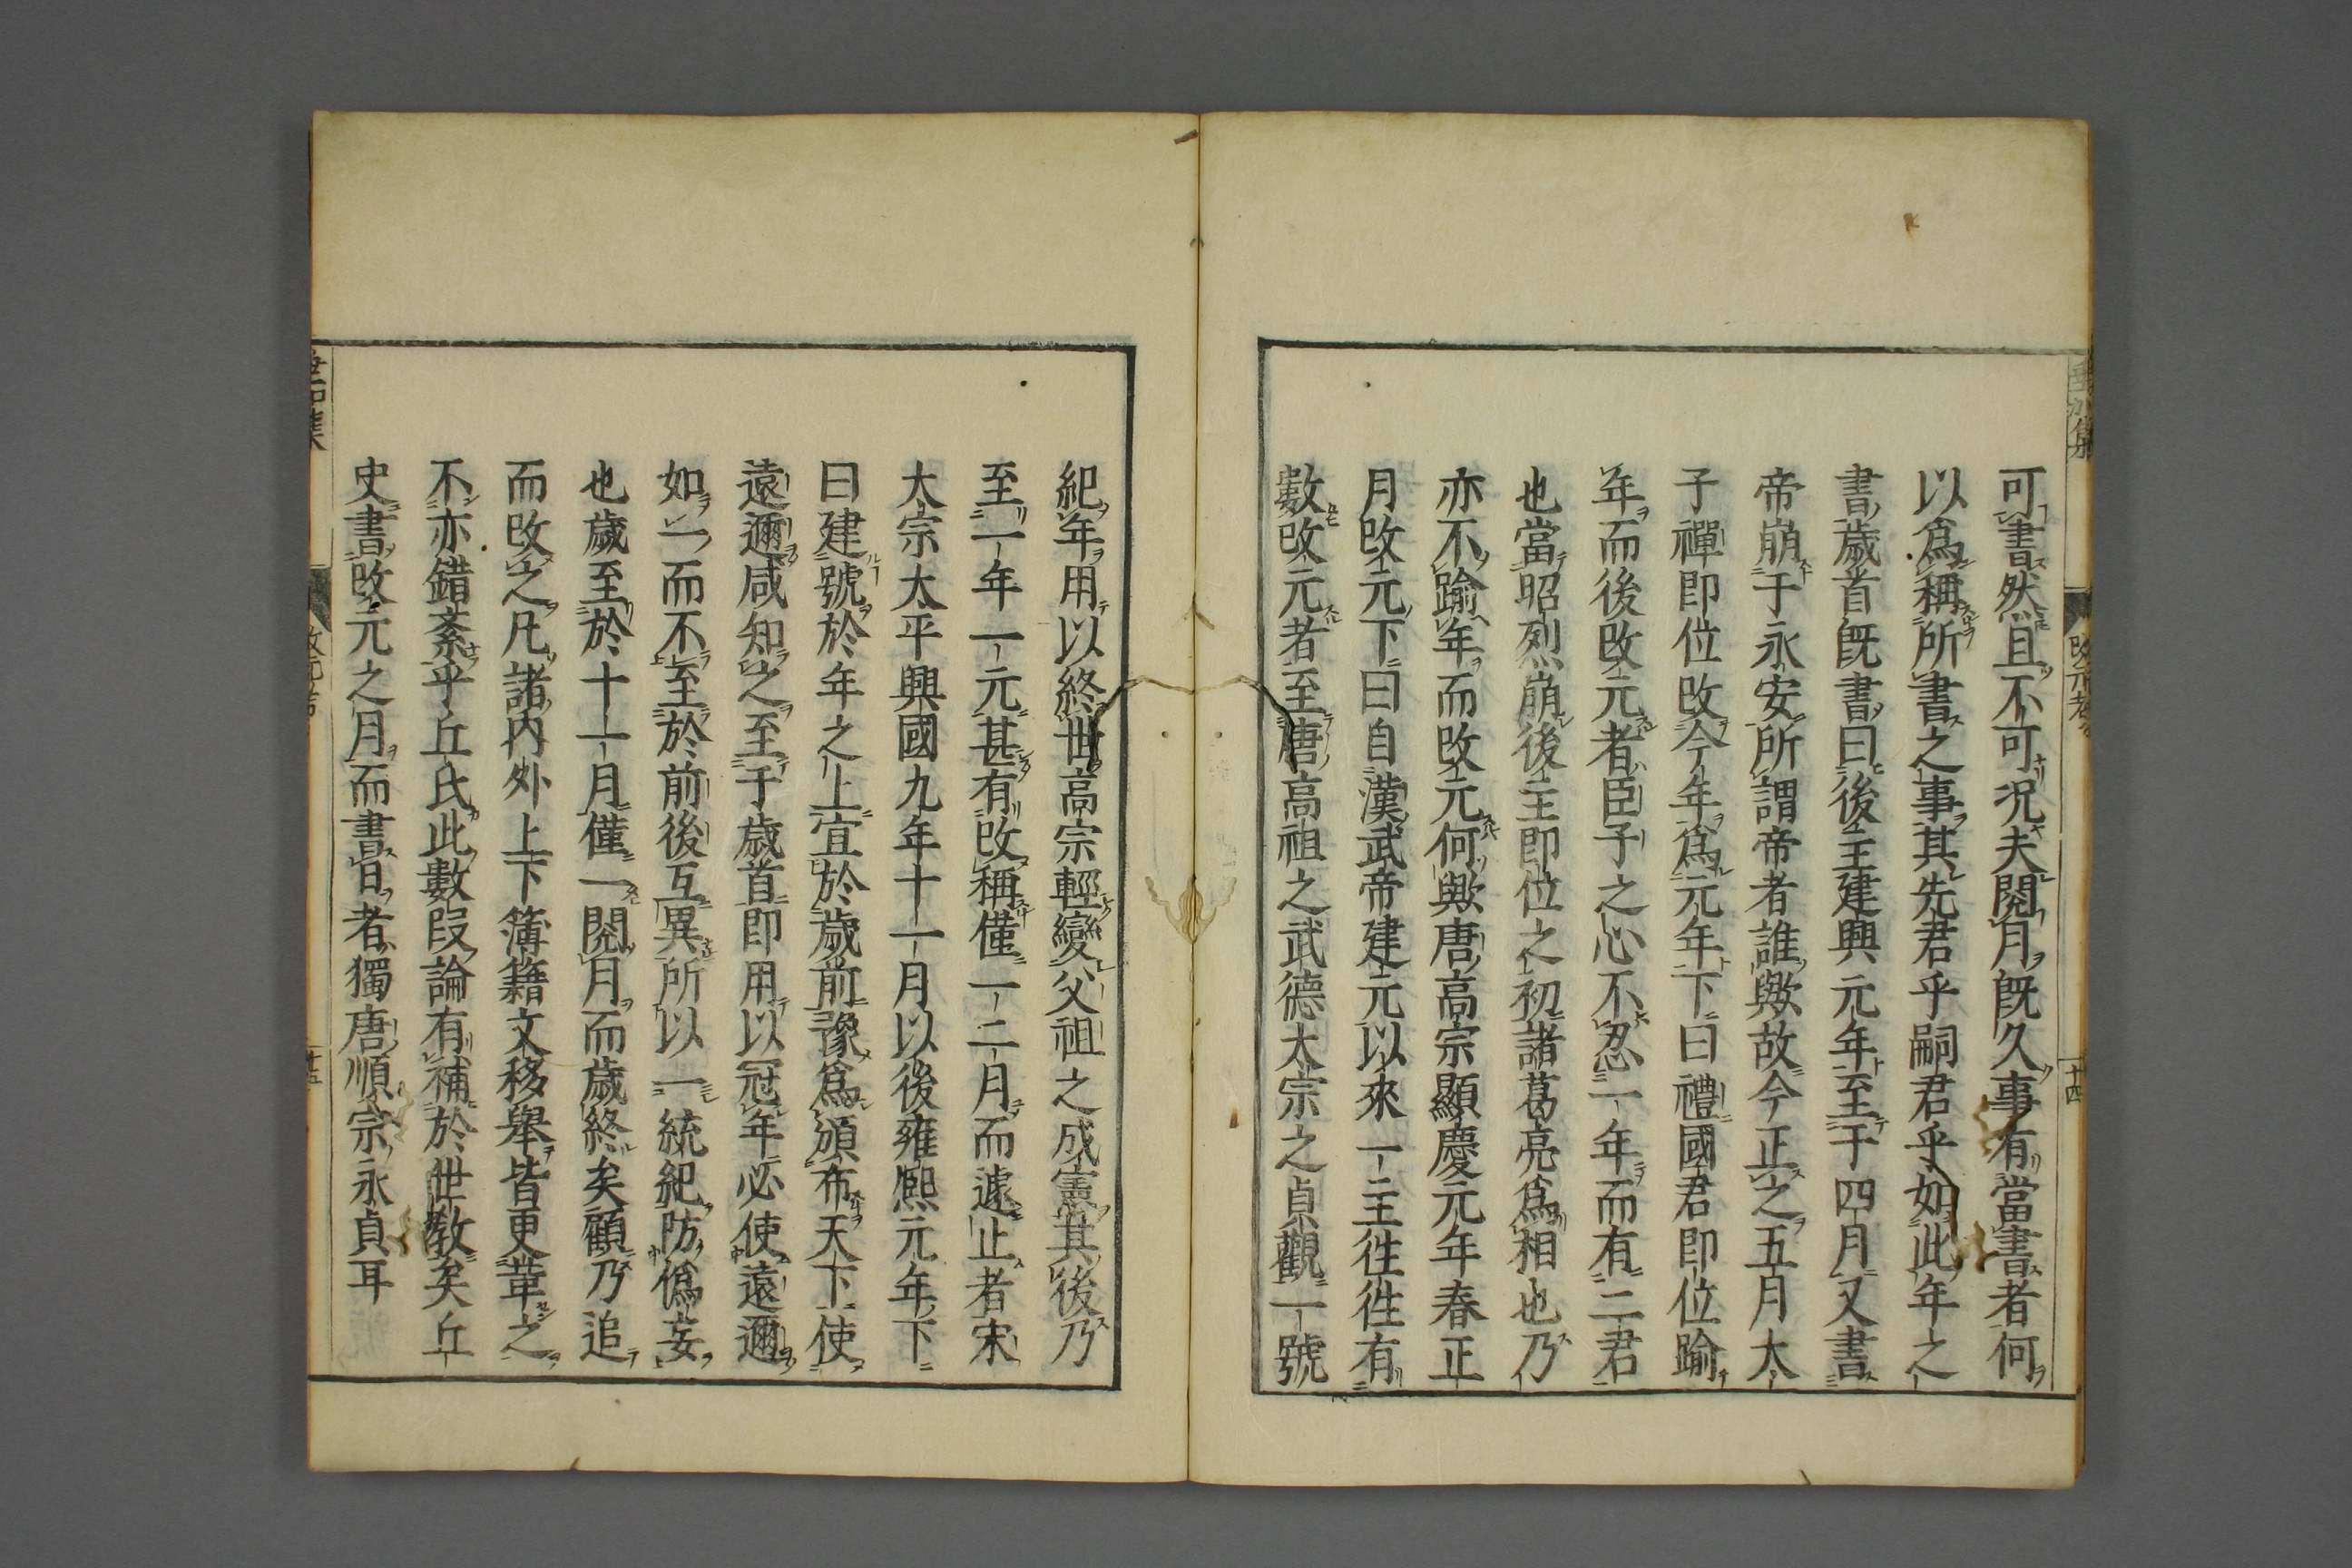 可書然且不可況夫閱月既久事有當書者何
以爲稱所書之事其先君乎嗣君乎如此年之
書歲首既書曰後主建興元年至于四月又書
帝崩于永安所謂帝者誰歟故今正之五月太
子禪即位改今年爲元年下曰禮國君即位踰
年而後改元者臣子之心不忍一年而有二君
也當昭烈崩後主即位之初諸葛亮爲相也乃
亦不踰年而改元何歟唐高宗顯慶元年春正
月改元下曰自漢武帝建元以來一主徃徃有
數改元者至唐高祖之武德太宗之貞觀一號
紀年用以終世高宗輕變父祖之成憲其後乃
至一年一元甚有改稱僅一二月而遽止者宋
太宗太平興國九年十一月以後雍熈元年下
曰建號於年之上宜於歲前豫爲頒布天下使
遠邇咸知之至于歲首即用以冠年必使遠邇
如一而不至於前後互異所以一統紀防僞妄
也歲至於十一月僅一閱月而歲終矣顧乃追
而改之凡諸内外上下簿籍文移舉皆更革之
不亦錯紊乎丘氏此數段論有補於世敎矣丘
史書改元之月而書日者獨唐順宗永貞耳
垂加集
改元考
十四
垂加集
改元考
十五